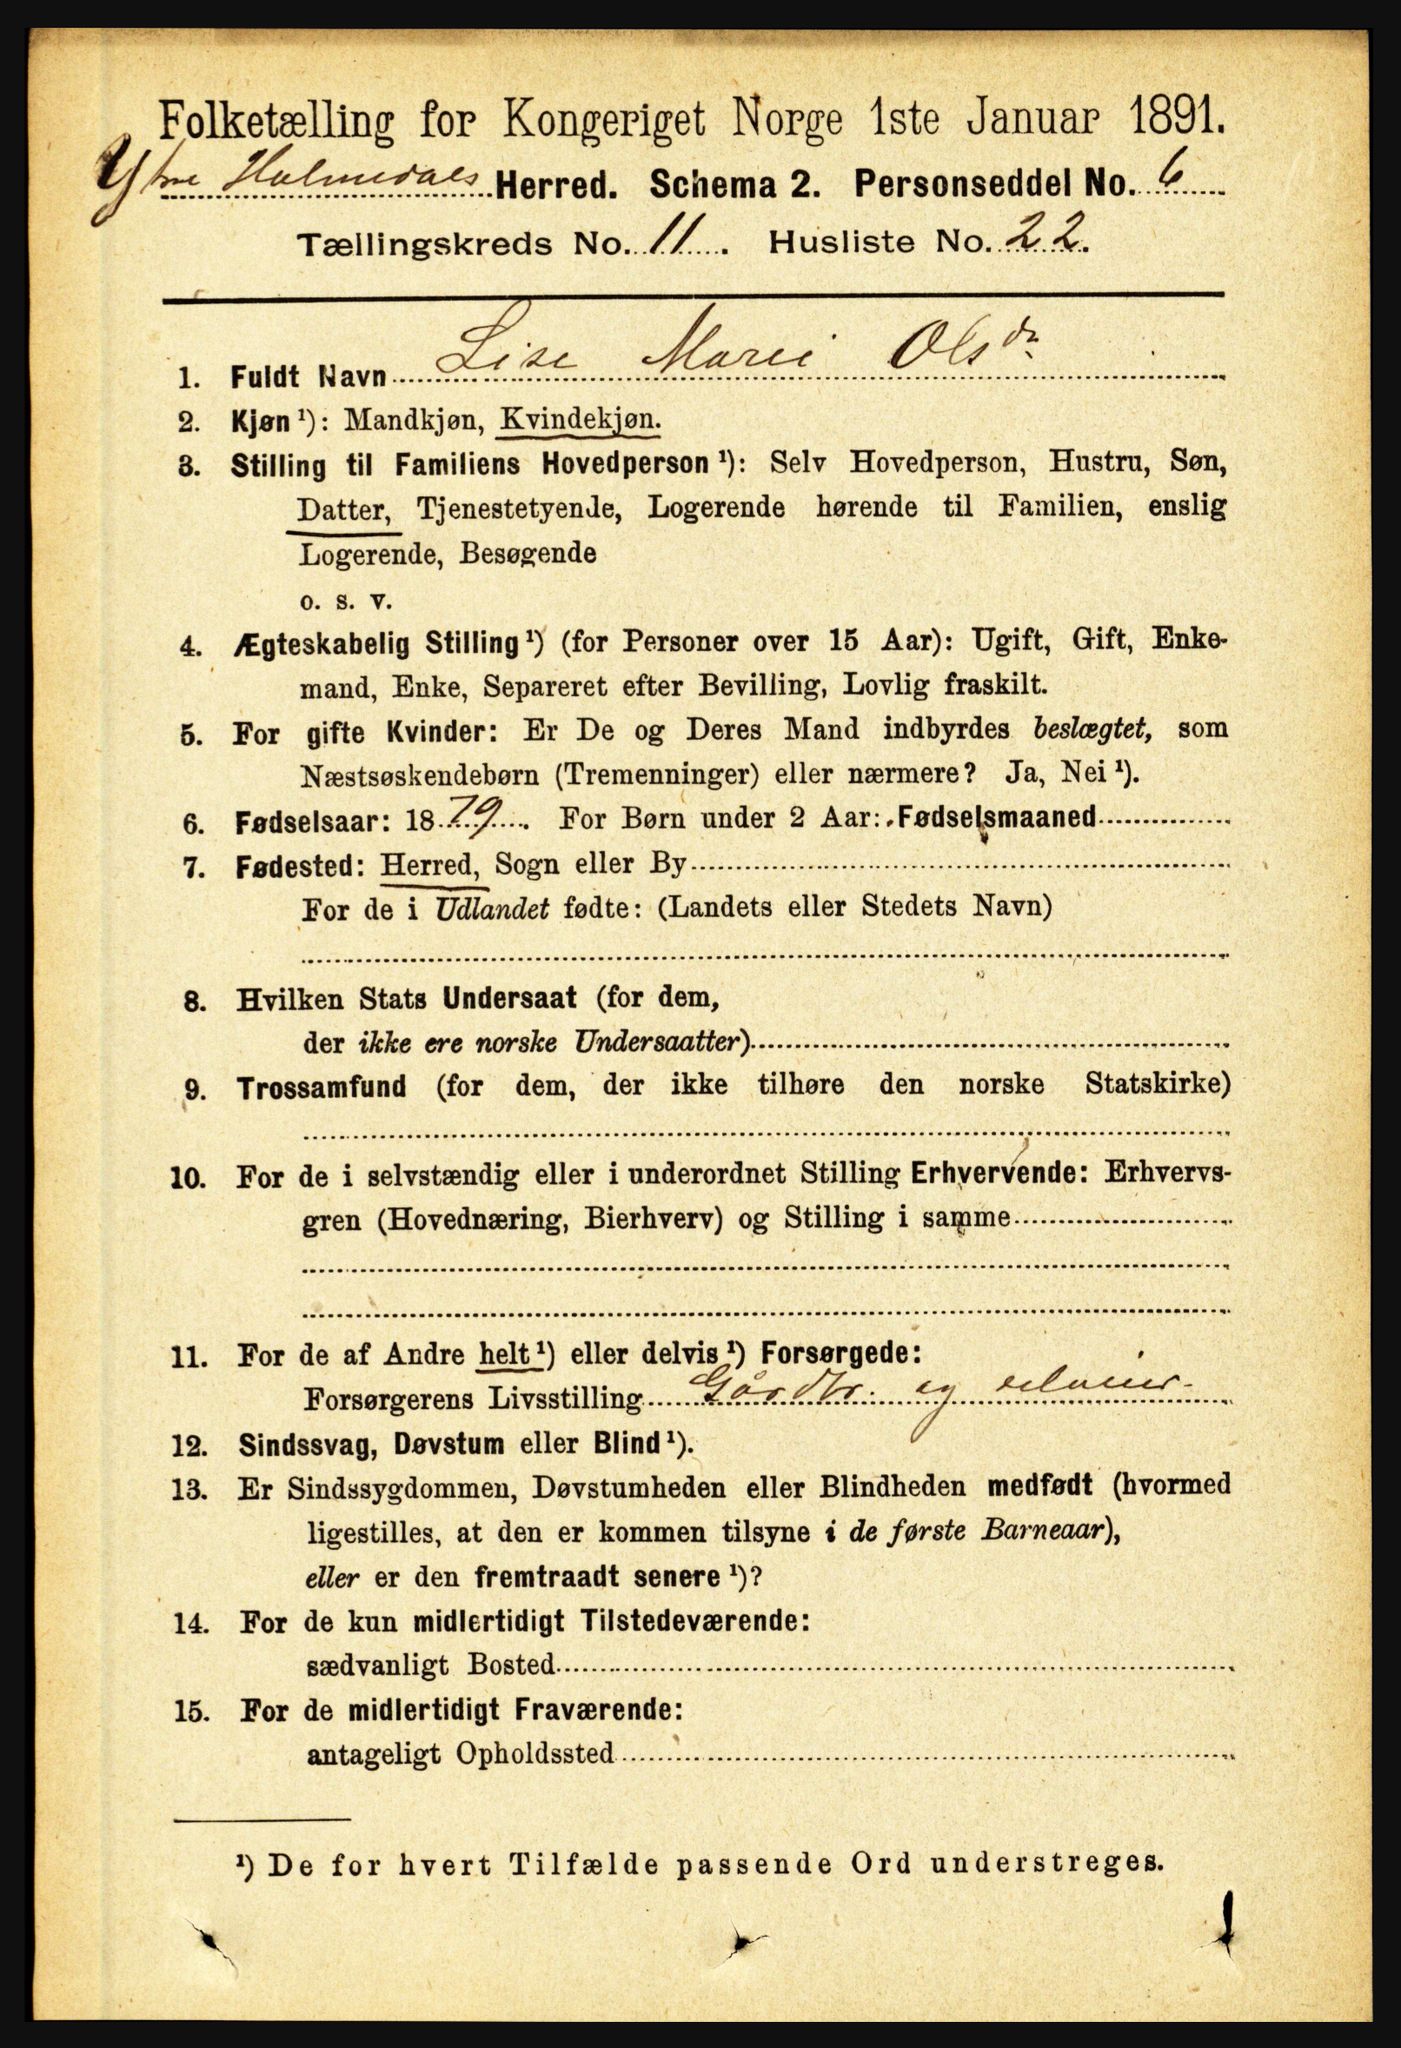 Folketælling for Kongeriget Norge 1ste Januar 1891.
Ytre Holmedals Herred. Schema 2. Personseddel No. 6
Tællingskreds No. 11. Husliste No. 22.
1. Fuldt Navn Lise Marie Olsdr
2. Kjøn ¹): Mandkjøn, Kvindekjøn.
3. Stilling til Familiens Hovedperson ¹): Selv Hovedperson, Hustru, Søn,
Datter, Tjenestetyende, Logerende hørende til Familien, enslig
Logerende, Besøgende
o. s. v.
4. Ægteskabelig Stilling ¹) (for Personer over 15 Aar): Ugift, Gift, Enke-
mand, Enke, Separeret efter Bevilling, Lovlig fraskilt.
5. For gifte Kvinder: Er De og Deres Mand indbyrdes beslægtet, som
Næstsøskendebørn (Tremenninger) eller nærmere? Ja, Nei ¹).
6. Fødselsaar: 1879. For Børn under 2 Aar: Fødselsmaaned
7. Fødested: Herred, Sogn eller By
For de i Udlandet fødte: (Landets eller Stedets Navn)
8. Hvilken Stats Undersaat (for dem,
der ikke ere norske Undersaatter)
9. Trossamfund (for dem, der ikke tilhøre den norske Statskirke)
10. For de i selvstændig eller i underordnet Stilling Erhvervende: Erhvervs-
gren (Hovednæring, Bierhverv) og Stilling i samme
11. For de af Andre helt ¹) eller delvis ¹) Forsørgede:
Forsørgerens Livsstilling Gårdbr. og
12. Sindssvag, Døvstum eller Blind ¹).
13. Er Sindssygdommen, Døvstumheden eller Blindheden medfødt (hvormed
ligestilles, at den er kommen tilsyne i de første Barneaar),
eller er den fremtraadt senere ¹)?
14. For de kun midlertidigt Tilstedeværende:
sædvanligt Bosted
15. For de midlertidigt Fraværende:
antageligt Opholdssted
¹) De for hvert Tilfælde passende Ord understreges.